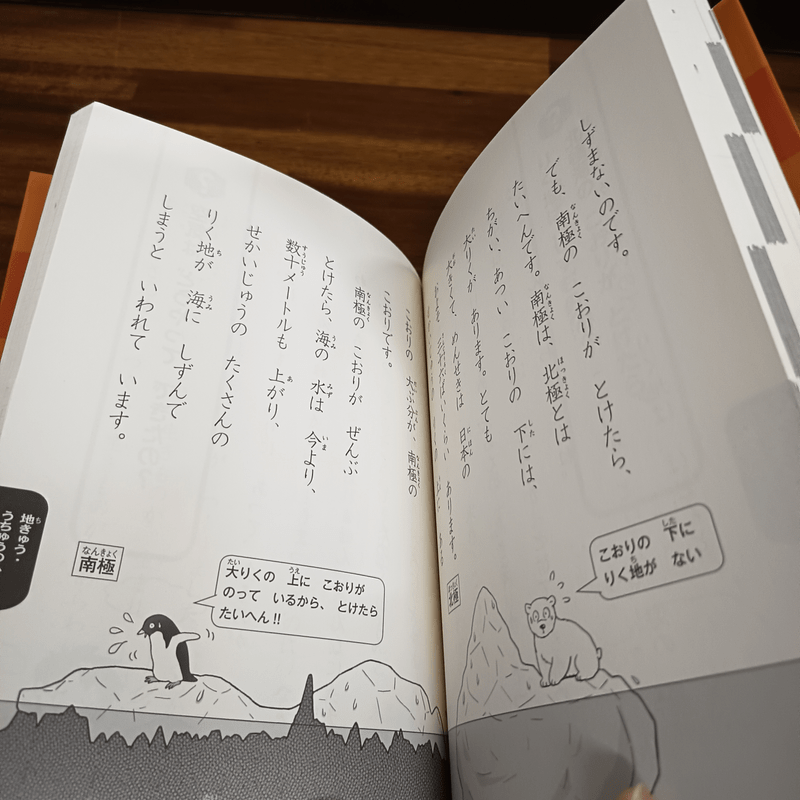 しずまないのです。
でも、南極の こおりが とけたら、
たいへんです。南極は、北極とは
ちがい、あつい こおりの 下には、
大りくが あります。とても
大きくて、めんせきは 日本の
ばいくらい あります。
こおりの 大ぶ分が、南極の
こおりです。
南極の こおりが ぜんぶ
とけたら、海の 水は 今より、
数十メートルも 上がり、
せかいじゅうの たくさんの
りく地が 海に しずんで
しまうと いわれて います。
こおりの 下に
りく地が ない
北極
大りくの 上に こおりが
のって いるから、とけたら
たいへん!!
南極
地きゅう・
うちゅうの